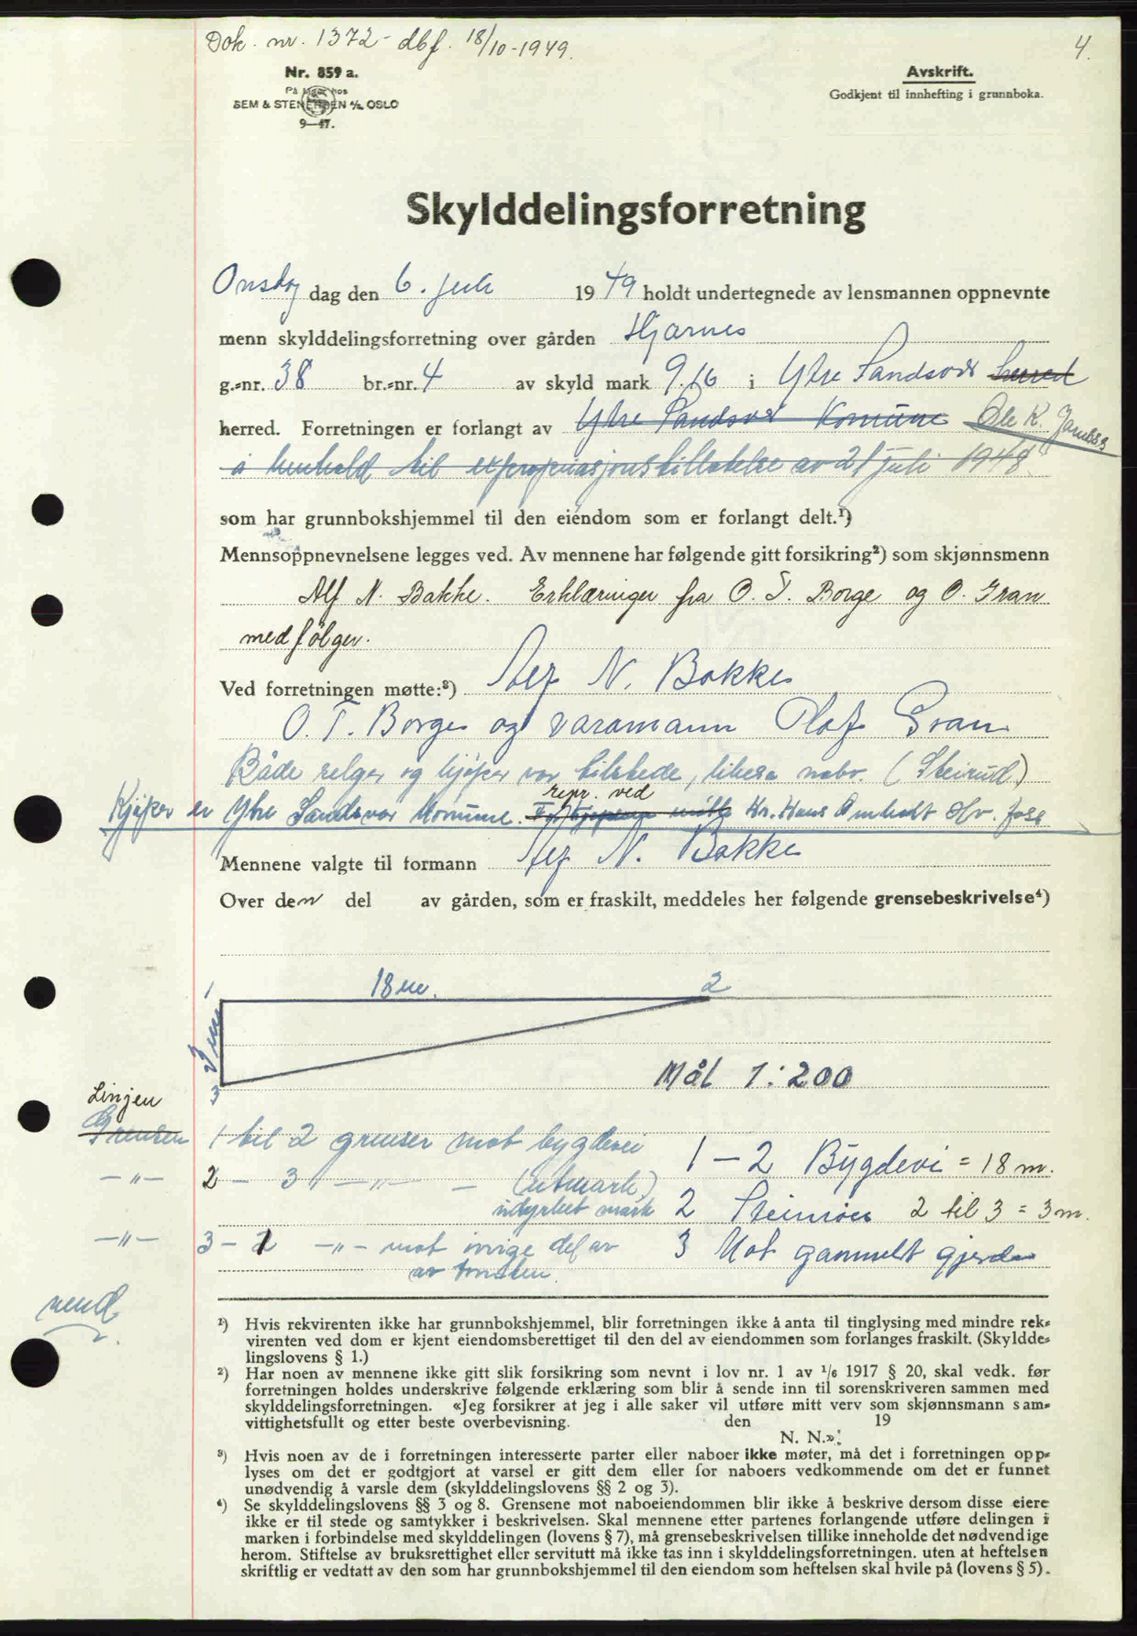 Dok. nr. 1372 - dbf. 18/10-1949.
4.
Nr. 859 a.
På lager hos
SEM & STENERSEN A/S, OSLO
9—47.
Avskrift.
Godkjent til innhefting i grunnboka.
Skylddelingsforretning
Onsdag dag den 6. juli 1949 holdt undertegnede av lensmannen oppnevnte
menn skylddelingsforretning over gården Hjarnes
g.-nr. 38 br.-nr. 4 av skyld mark 9.16 i Ytre Sandsvær herred
herred. Forretningen er forlangt av Ytre Sandsvær Komune Ole K. Jarness
i henhold til expropriasjonstillatelse av 21 juli 1948
som har grunnbokshjemmel til den eiendom som er forlangt delt.¹)
Mennsoppnevnelsene legges ved. Av mennene har følgende gitt forsikring²) som skjønnsmenn
Alf N. Bakke. Erklæringer fra O. T. Borge og O. Gran
medfølger.
Ved forretningen møtte:³) Alf N. Bakke
O. T. Borge og varamann Olaf Gran
Både selger og kjøper var tilstede, likesa nabo. (Steirud)
repr. ved
Kjøper er Ytre Sandsvær Komune. For kjøperen møtte Hr. Hans Amholt
Mennene valgte til formann Alf N. Bakke
Over den del av gården, som er fraskilt, meddeles her følgende grensebeskrivelse⁴)
1 18 m. 2
3 m
3
Mål 1:200
Linjen
Grensen 1 til 2 grenser mot bygdevei
1 — 2 Bygdevei = 18 m.
—"— 2 — 3 —"— — (utmark)
udyrket mark
2 2 til 3 = 3 m.
—"— 3 - 1 —"— mot øvrige del av
3 Mot gammelt gjerde
av
vend
¹) Hvis rekvirenten ikke har grunnbokshjemmel, blir forretningen ikke å anta til tinglysing med mindre rek-
virenten ved dom er kjent eiendomsberettiget til den del av eiendommen som forlanges fraskilt. (Skyldde-
lingslovens § 1.)
²) Har noen av mennene ikke gitt slik forsikring som nevnt i lov nr. 1 av 1/6 1917 § 20, skal vedk. før
forretningen holdes underskrive følgende erklæring som blir å sende inn til sorenskriveren sammen med
skylddelingsforretningen. «Jeg forsikrer at jeg i alle saker vil utføre mitt verv som skjønnsmann sam-
vittighetsfullt og etter beste overbevisning. den 19
N. N.»:
³) Hvis noen av de i forretningen interesserte parter eller naboer ikke møter, må det i forretningen opp-
lyses om det er godtgjort at varsel er gitt dem eller for naboers vedkommende om det er funnet
unødvendig å varsle dem (skylddelingslovens §§ 2 og 3).
⁴) Se skylddelingslovens §§ 3 og 8. Grensene mot naboeiendommen blir ikke å beskrive dersom disse eiere
ikke er til stede og samtykker i beskrivelsen. Skal mennene etter partenes forlangende utføre delingen i
marken i forbindelse med skylddelingen (lovens § 7), må grensebeskrivelsen tillike inneholde det nødvendige
herom. Stiftelse av bruksrettighet eller servitutt må ikke tas inn i skylddelingsforretningen. uten at heftelsen
skriftlig er vedtatt av den som har grunnbokshjemmel til den eiendom som heftelsen skal hvile på (lovens § 5).